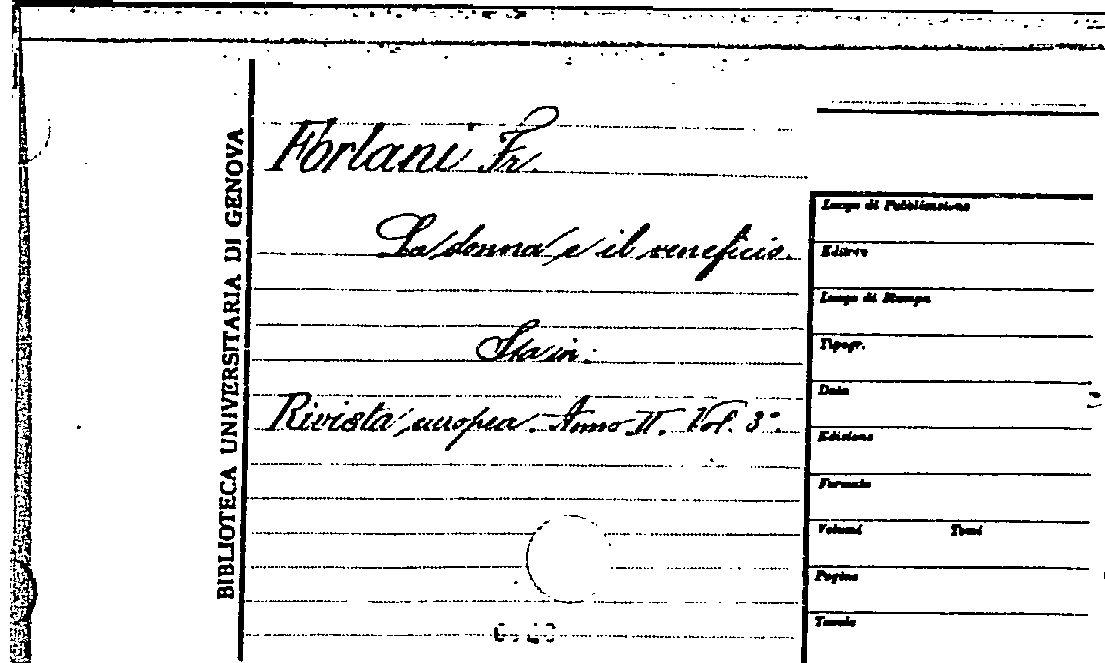 BIBLIOTECA UNIVERSITARIA DI GENOVA
Forlani Fr.
La donna e il beneficio.
Sta in:
Rivista europea. Anno II. Vol. 3°.
Luogo di Pubblicazione
Editore
Luogo di Stampa
Tipogr.
Data
Edizione
Formato
Volumi Tomi
Pagine
Tavole